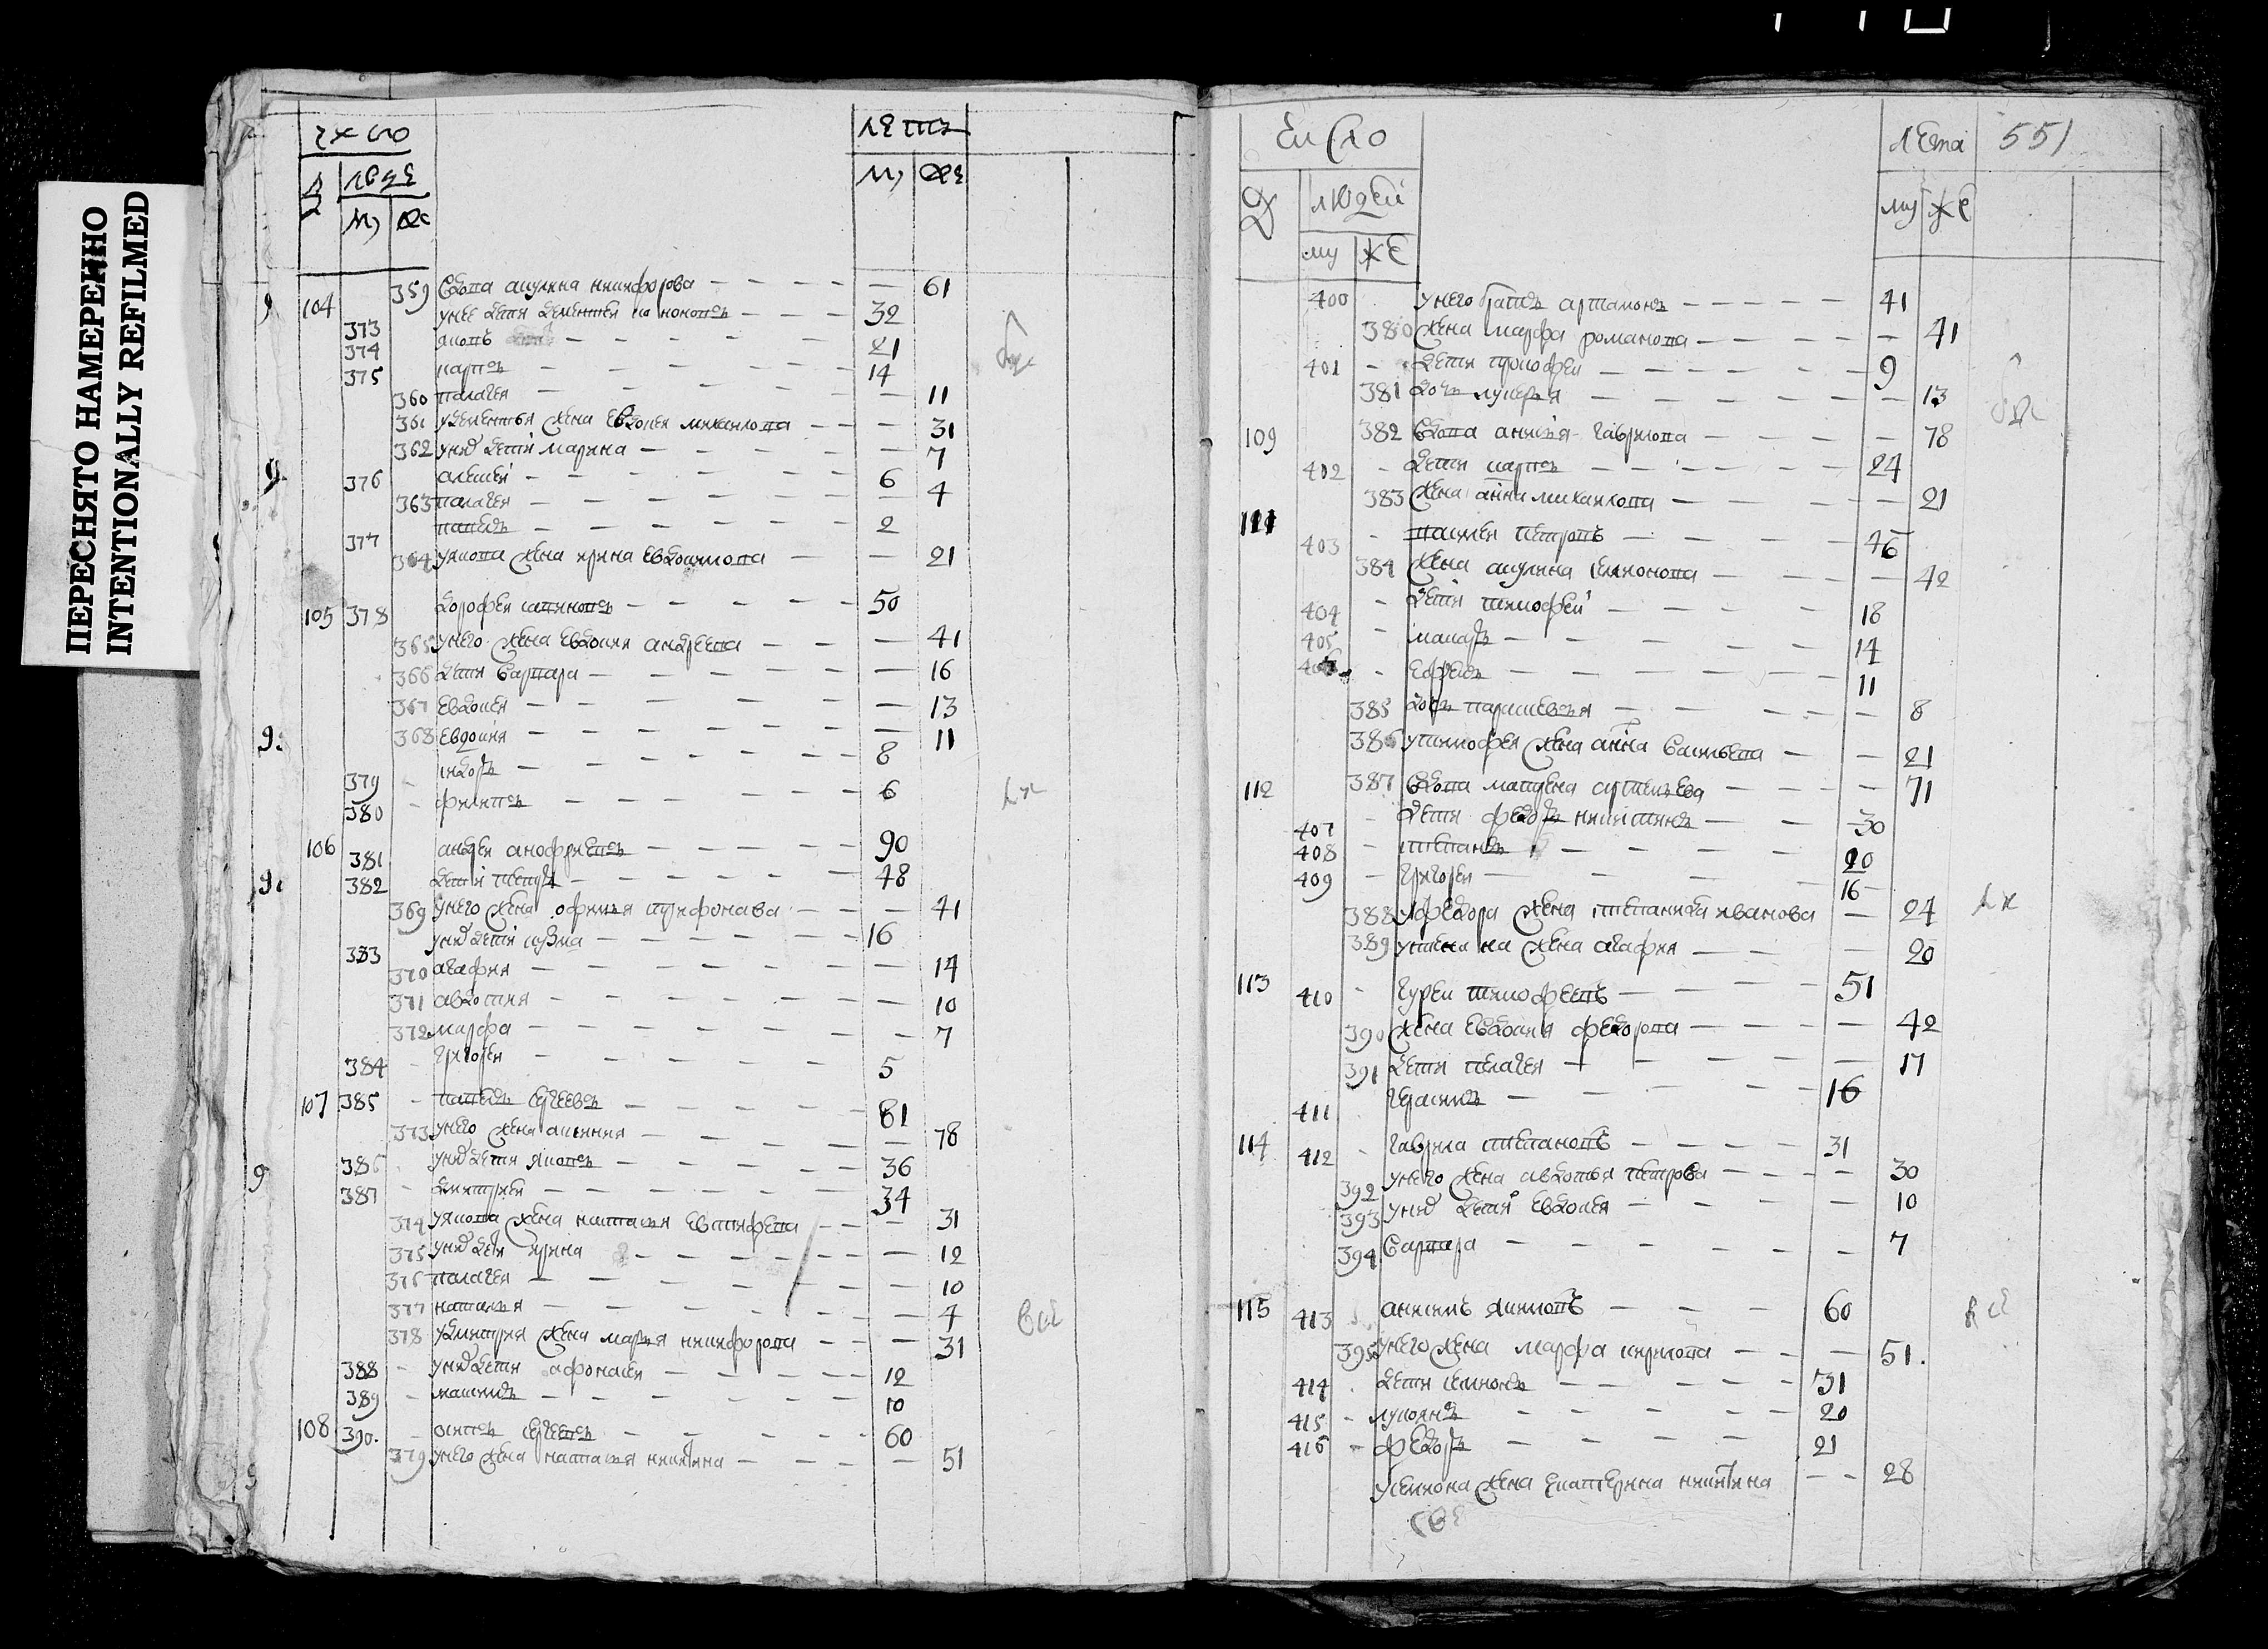 ПЕРЕСНЯТО НАМЕРЕННО
INTENTIONALLY REFILMED
число лета
люде му же
му же
104 359 вдова акулина никифорова — 61
у нее дети дементей 32
373 яковъ — 21
374 карпъ — 14
375
360 палагея — 11
361 у дементья жена евдокея михаилова — 31
362 у них дети марина — 7
376 алексей — 6
363 палагея — 4
377 павелъ — 2
364 у якова жена ирина евдокимова — 21
105 378 дорофеи — 50
365 у него жена евдокия андреева — 41
366 дети варвара — 16
367 евдокея — 13
368 евдокия — 11
379 — 8
380 филипъ — 6
106 381 андреи анофриевъ — 90
382 дети петръ — 48
369 у него жена офимья трифонава — 41
383 у них дети кузма — 16
370 агафия — 14
371 авдотия — 10
372 марфа — 7
384 григореи — 5
107 385 павелъ сергеевъ — 81
373 у него жена аксиния — 78
386 у них дети яковъ — 36
387 дмитреи — 34
374 у якова жена наталья евтифева — 31
375 у них дети ирина — 12
376 палагея — 10
377 наталья — 4
378 у дмитрия жена марья никифорова — 31
388 у них дети афонасеи — 12
389 максимъ — 10
108 390 осипъ сергеевъ — 60
379 у него жена наталья никитина — 51
число лета 551
Д людей му же
му же
400 у него братъ артамонъ — 41
380 жена марфа романова — 41
401 дети прокофеи — 9
381 дочь лукерья — 13
109 382 вдова анисья гаврилова — 78
402 дети карпъ — 24
383 жена анна михаилова — 21
111 403 василеи петровъ — 46
384 жена акулина семионова — 42
404 дети тимофеи — 18
405 макаръ — 14
406 ефремъ — 11
385 дочь парасковья — 8
386 у тимофея жена анна васильева — 21
112 387 вдова матрена артемьева — 71
407 дети федоръ никитинъ — 30
408 степанъ — 20
409 григореи — 16
388 у федора жена степанида иванова — 24
389 у степана жена агафия — 20
113 410 гуреи тимофеевъ — 51
390 жена евдокия федорова — 42
391 дети пелагея — 17
411 герасимъ — 16
114 412 гаврила степановъ — 31
392 у него жена авдотья петрова — 30
393 у них дети евдокея — 10
394 варвара — 7
115 413 анисимъ якимовъ — 60
395 у него жена марфа кирилова — 51
414 дети семионъ — 31
415 лукоянъ — 20
416 федоръ — 21
у семиона жена екатерина никитина — 28